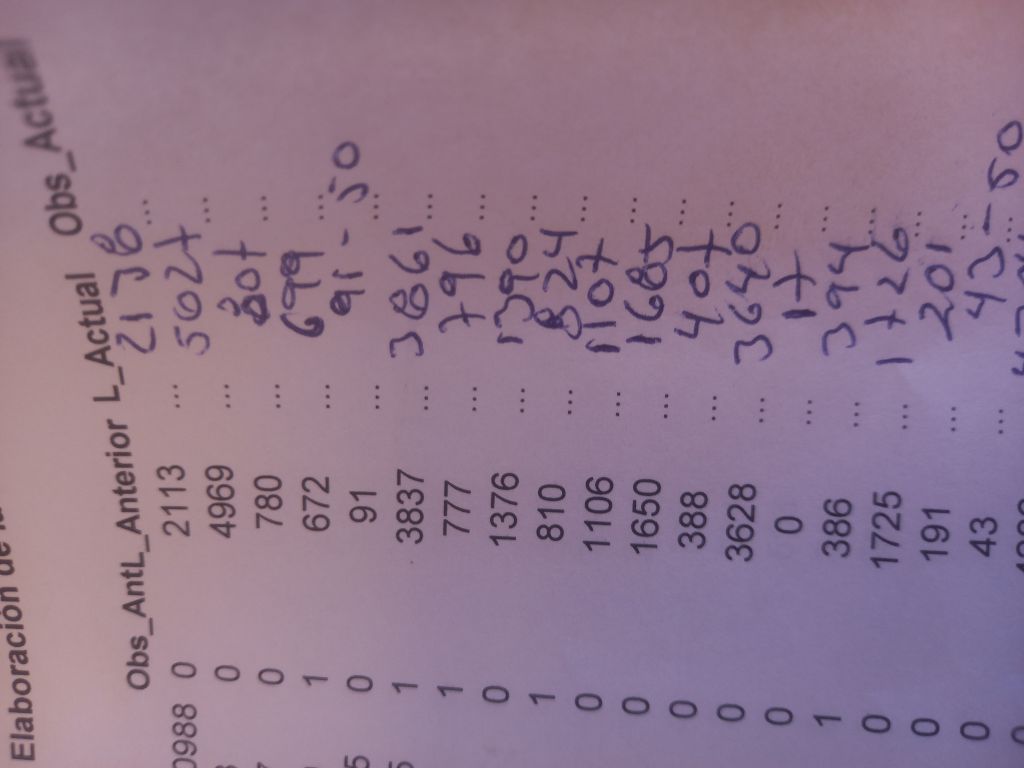 Elaboración de
Obs_AntL_Anterior L_Actual Obs_Actual
0988 0 2113 ... 2138 ...
0 4969 ... 5027 ...
0 780 ... 807 ...
1 672 ... 699 ...
0 91 ... 91 - 50 ...
1 3837 ... 3861 ...
1 777 ... 796 ...
0 1376 ... 1390 ...
1 810 ... 824 ...
0 1106 ... 1107 ...
0 1650 ... 1685 ...
0 388 ... 407 ...
0 3628 ... 3640 ...
0 0 ... 17 ...
1 386 ... 394 ...
0 1725 ... 1726 ...
0 191 ... 201 ...
0 43 ... 43 - 50 ...